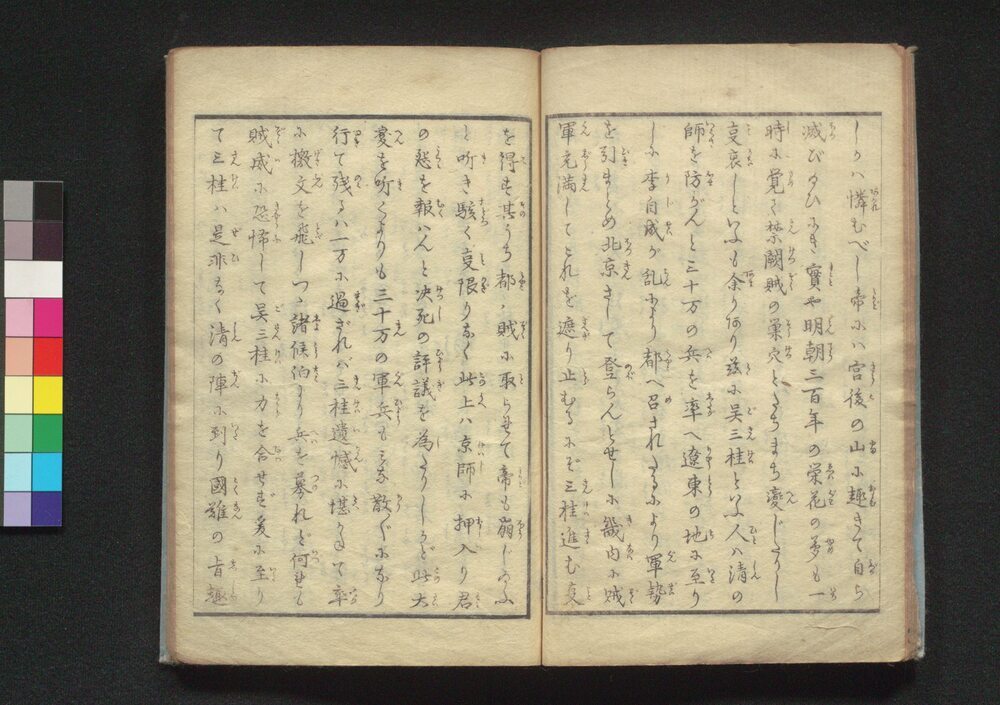 しかハ憐むべし帝にハ宮後の山に趣きて自ら
滅び給ひにき實や明朝三百年の栄花の夢も一
時に覚て禁闕賊の巣穴とたちまち変じたりし
哀哀しといふも余りあり茲に呉三桂といふ人ハ清の
師を防がんと三十万の兵を率へ遼東の地に至り
しに李自成が乱により都へ召されたるにより軍勢
を引まとめ北京さして登らんとせしに畿内に賊
軍充満してこれを遮り止むるにぞ三桂進む事
を得ず其うち都ハ賊に取られて帝も崩じ給ふ
と听き駭く事限りなく此上ハ京師に押入り君
の怨を報ハんと决死の評議を為たりしかど此大
変を听くよりも三十万の軍兵もみな散〴〵になり
行て残るハ一万に過ぎれバ三桂遺憾に堪かねて率
に檄文を飛しつゝ諸侯伯より兵を募れど何れも
賊威に恐怖して呉三桂に力を合せず爰に至り
て三桂ハ是非なく清の陣に到り國難の旨趣